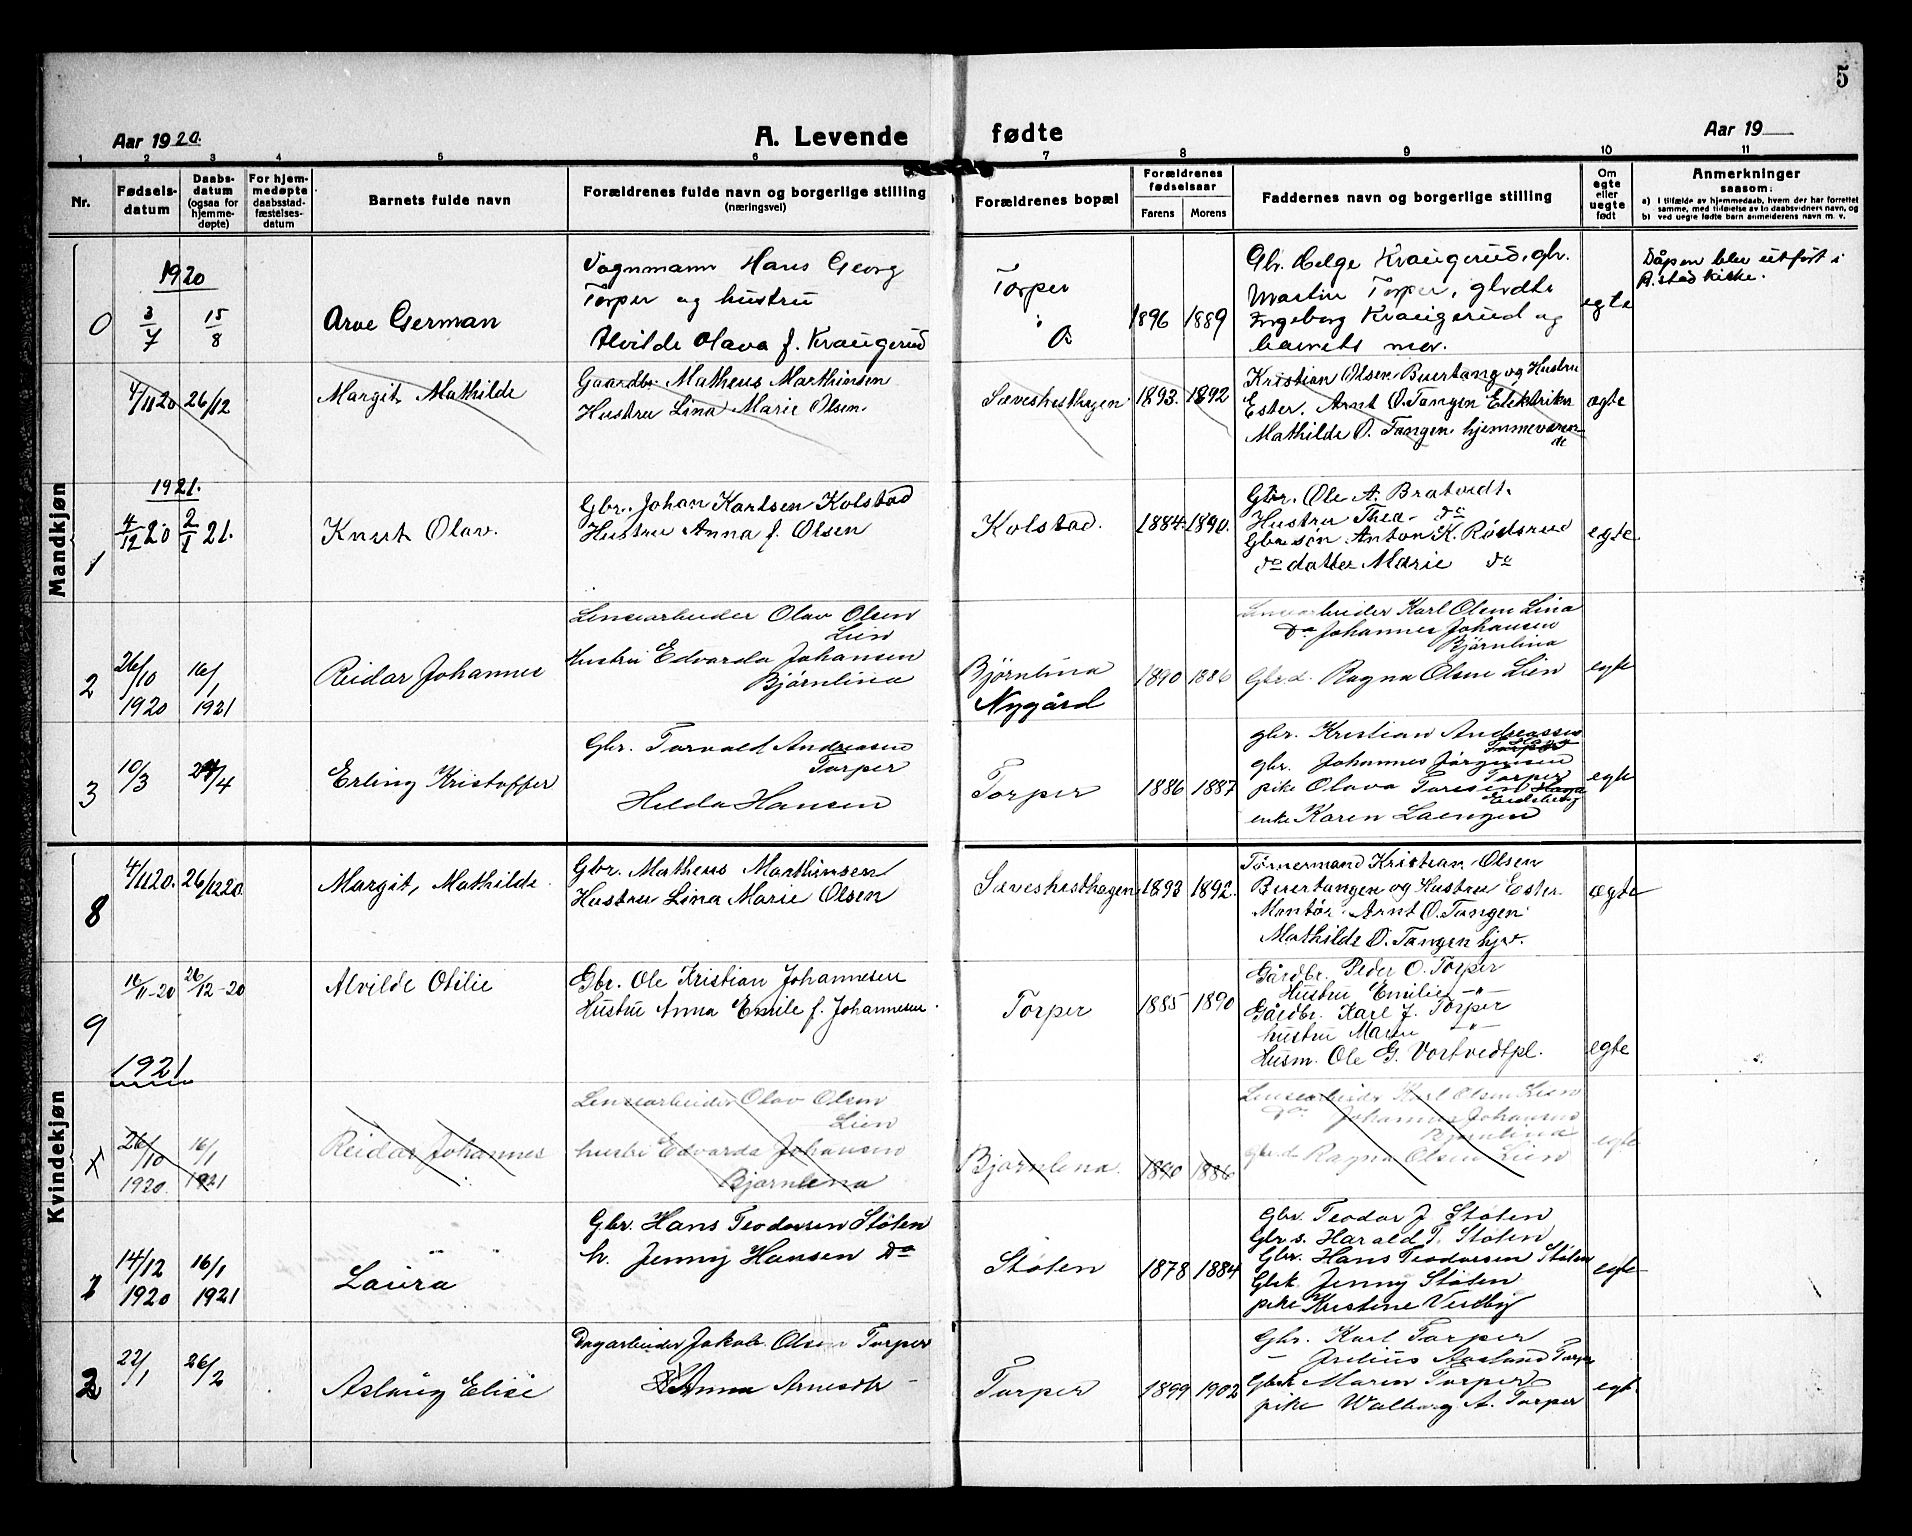 5
Aar 1920.
A. Levende fødte
Aar 19
1 2 3 4 5 6 7 8 9 10 11
Nr.
Fødsels-
datum
Daabs-
datum
(ogsaa for
hjemme-
døpte)
For hjem-
medøpte
daabsstad-
fæstelses-
datum
Barnets fulde navn
Forældrenes fulde navn og borgerlige stilling
(næringsvei)
Forældrenes bopæl
Forældrenes
fødselsaar
Farens Morens
Faddernes navn og borgerlige stilling
Om
egte
eller
uegte
født
Anmerkninger
saasom:
a) I tilfælde av hjemmedaab, hvem der har forrettet
samme, med tilføielse av to daabsvidners navn, og
b) ved uegte fødte barn anmelderens navn m. v.
Mandkjøn
1920
0 3/7 15/8 Arve German
Vognmann Hans Georg
Torper og hustru
Alvilde Olava f. Kraugerud
Torper
1896 1889
Gbr. Helge Kraugerud, gbr.
Martin Torper, gbrdtr
Ingeborg Kraugerud og
barnets mor.
egte
Dåpen blev utført i
4/11 20 26/12 Margit Mathilde
Gaardbr. Matheus Marthinsen
Hustru Lina Marie Olsen.
Sæveshesthagen
1893. 1892
Kristian Olsen Buertang og Hustru
Ester. Arnt O. Tangen Elektriker
Mathilde O. Tangen hjemmeværen-
de
ægte
1921.
1 4/12 20 2/1 21. Knut Olav.
Gbr. Johan Karlsen Kolstad
Hustru Anna f. Olsen
Kolstad.
1884 1890.
Gbr. Ole A. Bratvedt.
Hustru Thea do
Gbr søn Anton K. Rödsrud
do datter Marie do
egte
2 26/10 1920 16/1 1921 Reidar Johannes
Lensearbeider Olav Olsen
Lien
Hustru Edvarda Johansen
Bjørnlina
Bjørnlina
Nygård
1890 1886
Lensearbeider Karl Olsen Lina
Do Johannes Johansen
Bjørnlina
Gbrd. Ragna Olsen Lien
egte
3 10/3 24/4 Erling Kristoffer
Gbr. Torvald Andreasen
Torper
Hilda Hansen
Torper
1886 1887
gbr. Kristian Andreassen
gbr. Johannes Jørgensen
Torper
pike Olava Toresen
enke Karen Laengen
egte
Kvindekjøn
8 4/11 20. 26/12 20. Margit, Mathilde.
Gbr. Matheus Marthinsen
Hustru Lina Marie Olsen
Sæveshesthagen
1893 1892.
Tømmermand Kristian Olsen
Buertangen og Hustru Ester.
Montør Arnt O. Tangen
Mathilde O. Tangen hjv.
ægte
9 26/12-20 Alvilde Otilie
Gbr. Ole Kristian Johannesen
Hustru Anna Emilie f. Johannesen
Torper
1885 1890
Gårdbr. Peder O. Torper
Hustru Emilie -"-
Gårdbr. Karl J. Torper
hustru Maren -"-
Husm. Ole G. Vortvedtpl.
egte
1921
x 26/10 1920. 16/1 1921 Reidar Johannes
Lensearbeider Olav Olsen
Lien
hustru Edvarda Johansen
Bjørnlina
Bjørnlena.
1890 1886
Lensearbeider Karl Olsen Lien
Do Johannes Johansen
Bjørnlina
gbrd. Ragna Olsen Lien
egte
1 14/12 1920 16/1 1921 Laura
Gbr. Hans Teodorsen Støten
h. Jenny Hansen Do
Støten
1878 1884
Gbr. Teodor J. Støten
Gbr s. Harald T. Støten
Gbr. Hans Teodorsen Støten
Gbrk. Jenny Støten
pike Kristine Vestby
egte
2 22/1 26/2 Aslaug Elise
Dagarbeider Jakob Olsen Torper
Anna Arnesdtr -
Torper
1899 1902
Gbr. Karl Torper
— Julius Aasland Torper
Gbrk Maren Torper
pike Walborg A. Torper
egte